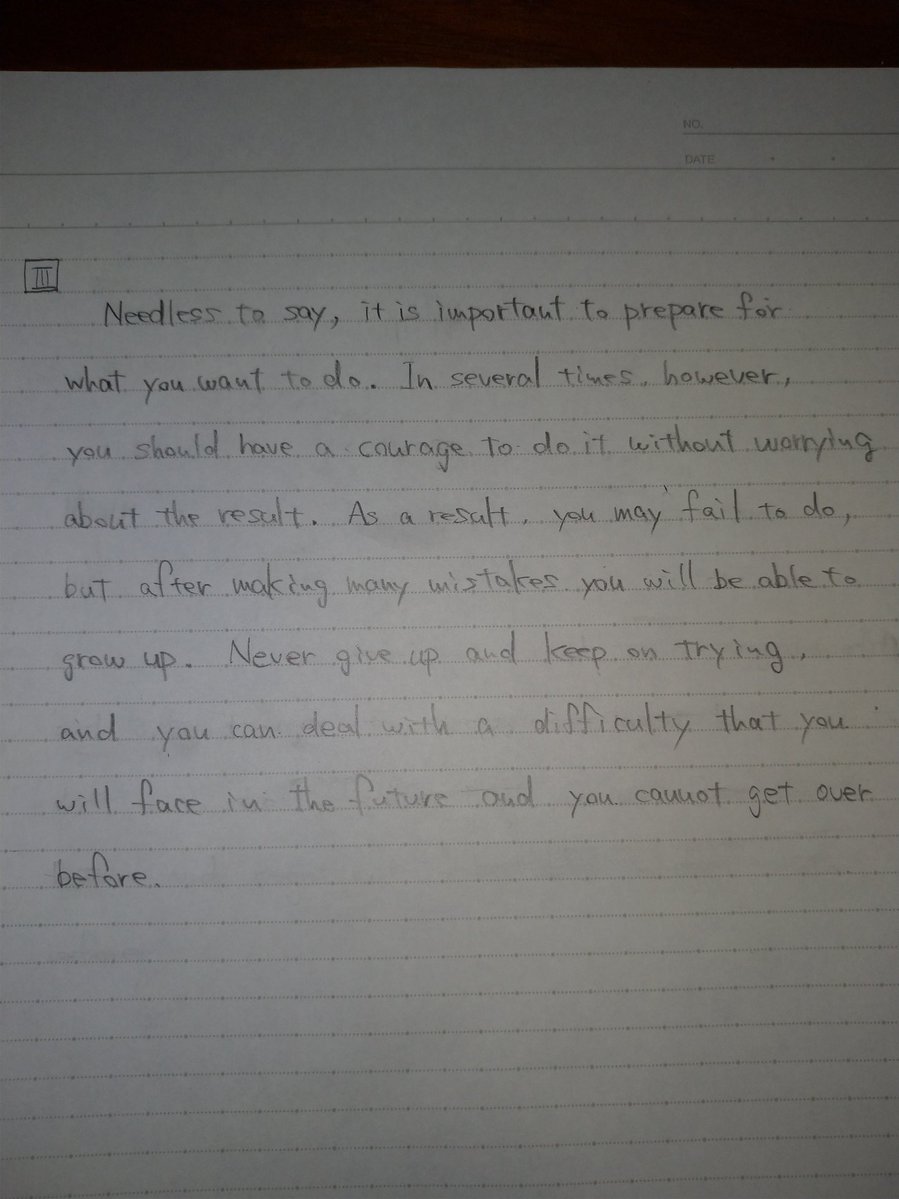 NO.
DATE
III
Needless to say, it is important to prepare for
what you want to do. In several times, however,
you should have a courage to do it without worrying
about the result. As a result, you may fail to do,
but after making many mistakes you will be able to
grow up. Never give up and keep on trying,
and you can deal with a difficulty that you
will face in the future and you cannot get over
before.